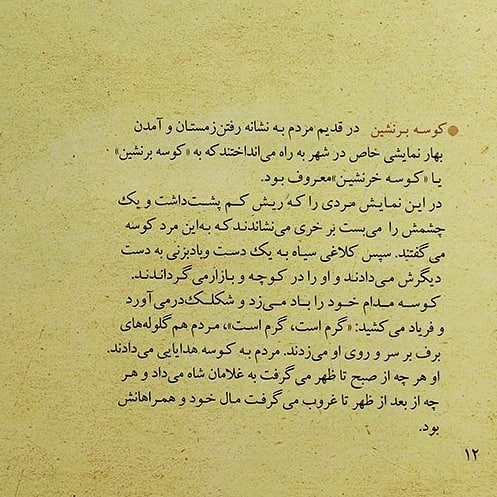 ● کوسه برنشین در قدیم مردم به نشانه رفتن زمستان و آمدن
بهار نمایشی خاص در شهر به راه می‌انداختند که به «کوسه برنشین»
یا «کوسه خرنشین» معروف بود.
در این نمایش مردی را که ریش کم پشت داشت و یک
چشمش را می‌بست بر خری می‌نشاندند که به این مرد کوسه
می‌گفتند. سپس کلاغی سیاه به یک دست و بادبزنی به دست
دیگرش می‌دادند و او را در کوچه و بازار می‌گرداندند.
کوسه مدام خود را باد می‌زد و شکلک درمی‌آورد
و فریاد می‌کشید: «گرم است، گرم است»، مردم هم گلوله‌های
برف بر سر و روی او می‌زدند. مردم به کوسه هدایایی می‌دادند.
او هر چه از صبح تا ظهر می‌گرفت به غلامان شاه می‌داد و هر
چه از بعد از ظهر تا غروب می‌گرفت مال خود و همراهانش
بود.
۱۲